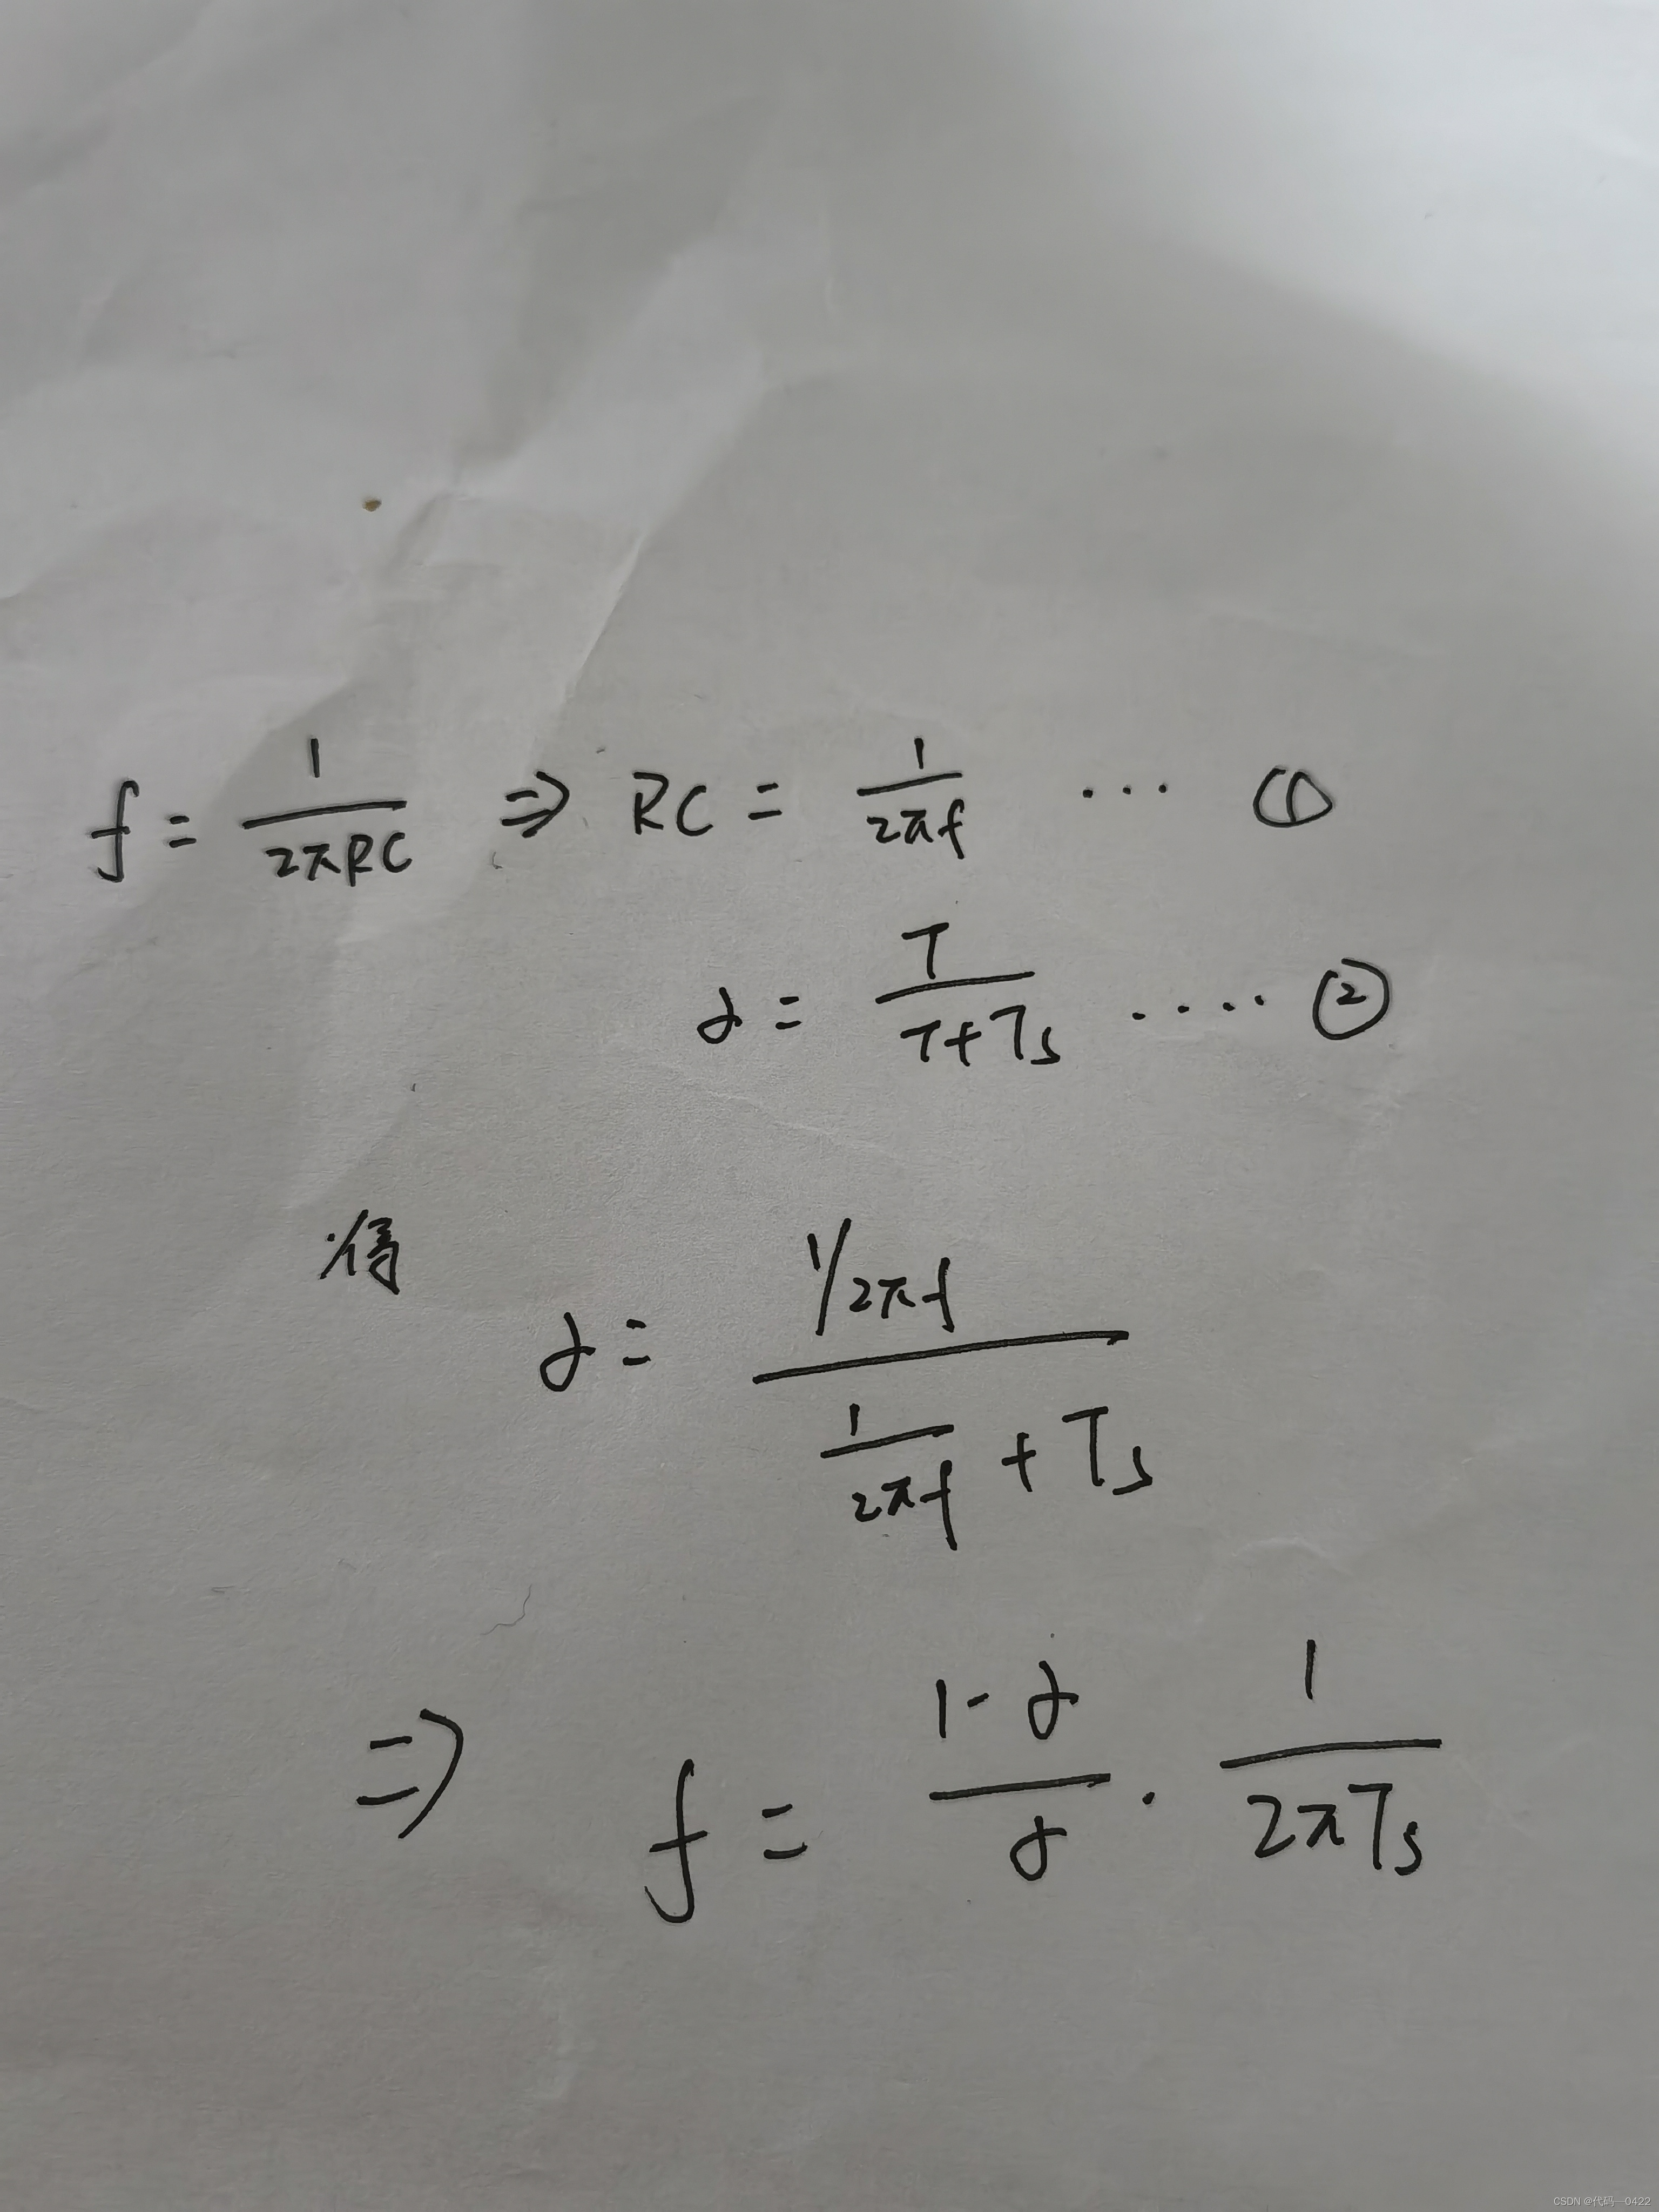 f = 1/2πRC ⇒ RC = 1/2πf ... ①
α = T/T+Ts ..... ②
得
α = 1/2πf / 1/2πf + Ts
⇒ f = 1-α/α · 1/2πTs
CSDN @代码一0422